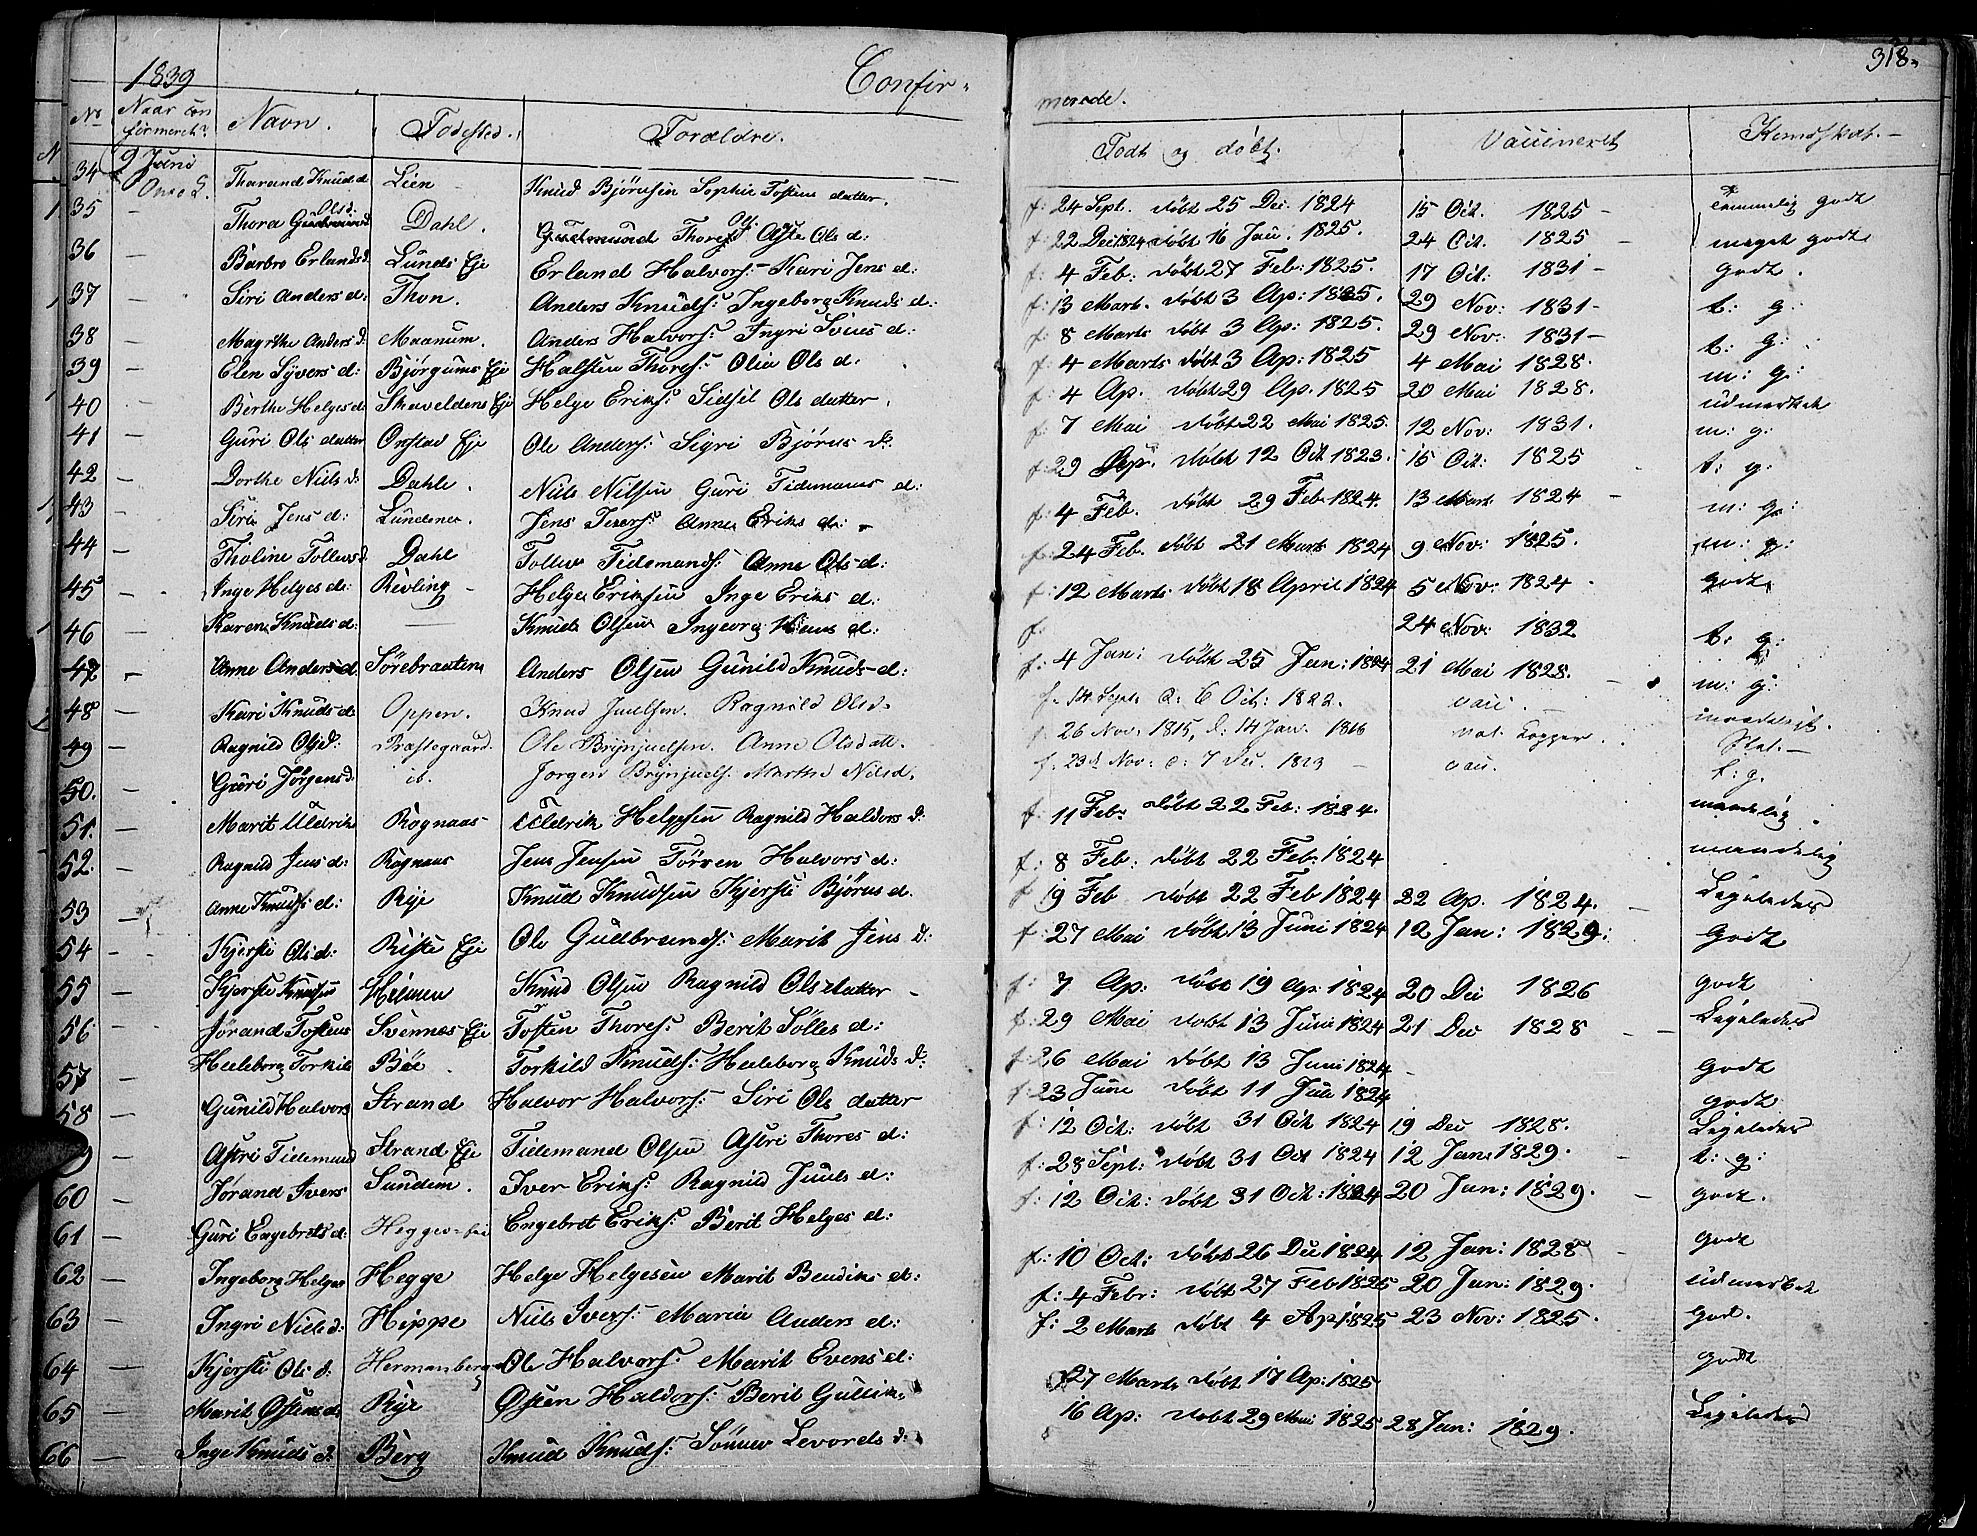 1839 Confir- merede. 318.
No Naar con firmeret? Navn. Fødested. Forældre. Født og døbt. Vaccineret Kundskab.
34 9 Juni Thorand Knuds d Lien Knud Bjørnsen Sophie Tostens datter. f: 24 Sept. døbt 25 Dec. 1824 15 Oct. 1825 - Temmelig godt
35 - Thora Olsd. Dahl. Ole Ols d: f: 22 Dec 1824 døbt 16 Jan. 1825. 24 Oct. 1825 - meget godt
36 - Barbro Erlands d. Lunds Eje Erland Halvors: Kari Jens d: f: 4 Feb: døbt 27 Feb: 1825. 17 Oct: 1831 - godt.
37 - Siri Anders d: Thon. Anders Knuds: Ingeborg Knuds d: f: 13 Mart. døbt 3 Ap: 1825. 29 Nov: 1831 - t: g:
38 - Magrthe Anders d: Maanum. Anders Halvors: Ingri Svens d: f: 8 Marts døbt 3 Ap: 1825. 29 Nov: 1831 - t: g:
39 - Elen Syvers d: Bjørgums Eje Halsten Thores: Olia Ols d: f: 4 Marts døbt 3 Ap: 1825 4 Mai 1828. m: g:
40 - Berthe Helges d Skaveldens Eje Helge Eriks: Sidsel Ols datter. f: 4 Ap. døbt 29 Ap. 1825 20 Mai 1828. udmærket
41 - Guri Ols datter Onstad Eje Ole Anders: Sigri Bjørns d: f: 7 Mai døbt 22 Mai 1825. 12 Nov: 1831. m: g:
42 - Dorthe Niels d: Dahle. Niels Nilsen Guri Tidemans d: f: 29 Sep. døbt 12 Oct 1823. 15 Oct: 1825 t: g:
43 - Siri Jens d: Lundene. Jens Ivers: Anne Eriks d: f: 4 Feb. døbt 29 Feb 1824. 13 Mart 1824 - m: g:
44 - Tholine Tollevs d. Dahl Tollev Tidemands: Anne Ols d: f: 24 Feb. døbt 21 Marts 1824 9 Nov: 1825. m: g:
45 - Inge Helges d: Revling - Helge Eriksen Inge Eriks d: f: 12 Marts døbt 18 April 1824 5 Nov: 1824 - godt
46 - Karen Knuds d: — Knud Olsen Ingeorg Hans d: f: 24 Nov: 1832 t: g:
47 - Anne Anders d. Sørebraaten Anders Olsen Gunild Knuds d: f: 4 Jan: døbt 25 Jan: 1824 21 Mai 1828. m: g:
48 - Kari Knuds d: Oppen. Knud Juulsen. Ragnild Olsd. f. 14 Sept. d: 6 Oct: 1822. vacc.
49 - Ragnild Olsd: Præstegaard. Ole Brynjuelsen. Anne Olsdatt. f. 26 Nov: 1815, d: 14 Jan. 1816 nat. Kopper. Slet. -
50. - Guri Jørgens d. ib. Jorgen Brynjuels. Marthe Nilsd. f. 23 Nov: d: 7 Dec. 1823 - vac. t: g.
51. - Marit Uldriks Rognaas Uldrik Helgesen Ragnild Haldors d: f: 11 Feb: døbt 22 Feb: 1824. maadelig.
52. - Ragnild Jens d: Rognaas Jens Jensen Torven Halvors d: f: 8 Feb: døbt 22 Feb: 1824 maadelig
53 - Anne Knuds d: Rye Knud Knudsen Kjersti Bjørns d. f 19 Feb døbt 22 Feb 1824 22 Ap. 1824. Ligeledes
54 - Kjersti Ols d: Riste Eje Ole Gudbrands: Marit Jens d: f: 27 Mai døbt 13 Juni 1824 12 Jan: 1829: Godt
55 - Kjersti Knudsen Hilmen Knud Olsen Ragnild Ols datter - f: 7 Ap: døbt 19 Ap. 1824 20 Dec 1826 godt
56 - Jørand Tostens Svennæs Eje Tosten Thores: Berit Sølles d: f: 29 Mai døbt 13 Juni 1824 21 Dec 1828 Ligeledes
57 - Helleborg Torkils Bøe. Torkild Knuds: Helleborg Knuds d: f: 26 Mai døbt 13 Juni 1824 - godt
58 - Gunild Halvors Strand Halvor Halvors: Siri Ols datter f: 23 Juni døbt 11 Juli 1824 godt
- Astri Tidemand Strand Eje Tidemand Olsen Astri Thores d: f: 12 Oct: døbt 31 Oct 1824 19 Dec 1828. Ligeledes
60 - Jørand Ivers Sundem. Iver Eriks: Ragnild Juuls d: f: 28 Sept: døbt 31 Oct 1824 12 Jan: 1829. t: g:
61 - Guri Engebrets d: Engebret Eriks: Berit Helges d: f: 12 Oct: døbt 31 Oct: 1824 20 Jan: 1829. godt.
62 - Ingeborg Helges Hegge Helge Helgesen Marit Bendiks d: f: 10 Oct: døbt 26 Dec 1824 12 Jan: 1828 godt
63 - Ingri Niels d: Hippe Niels Ivers: Maria Anders d: f: 4 Febr: døbt 27 Feb 1825 20 Jan: 1829. udmærket
64 - Kjersti Ols d: Hermansberg Ole Halvors: Marit Evens d: f: 2 Marts døbt 4 Ap 1825 23 Nov: 1825. god.
65 - Marit Østens d. Rye Østen Haldors: Berit Gullik 27 Marts døbt 17 Ap: 1825 godt
66 - Inge Knuds d. Berg Knud Knuds: Levords d: 16 Ap: døbt 29 Mai 1825 28 Jan: 1829. Ligeledes